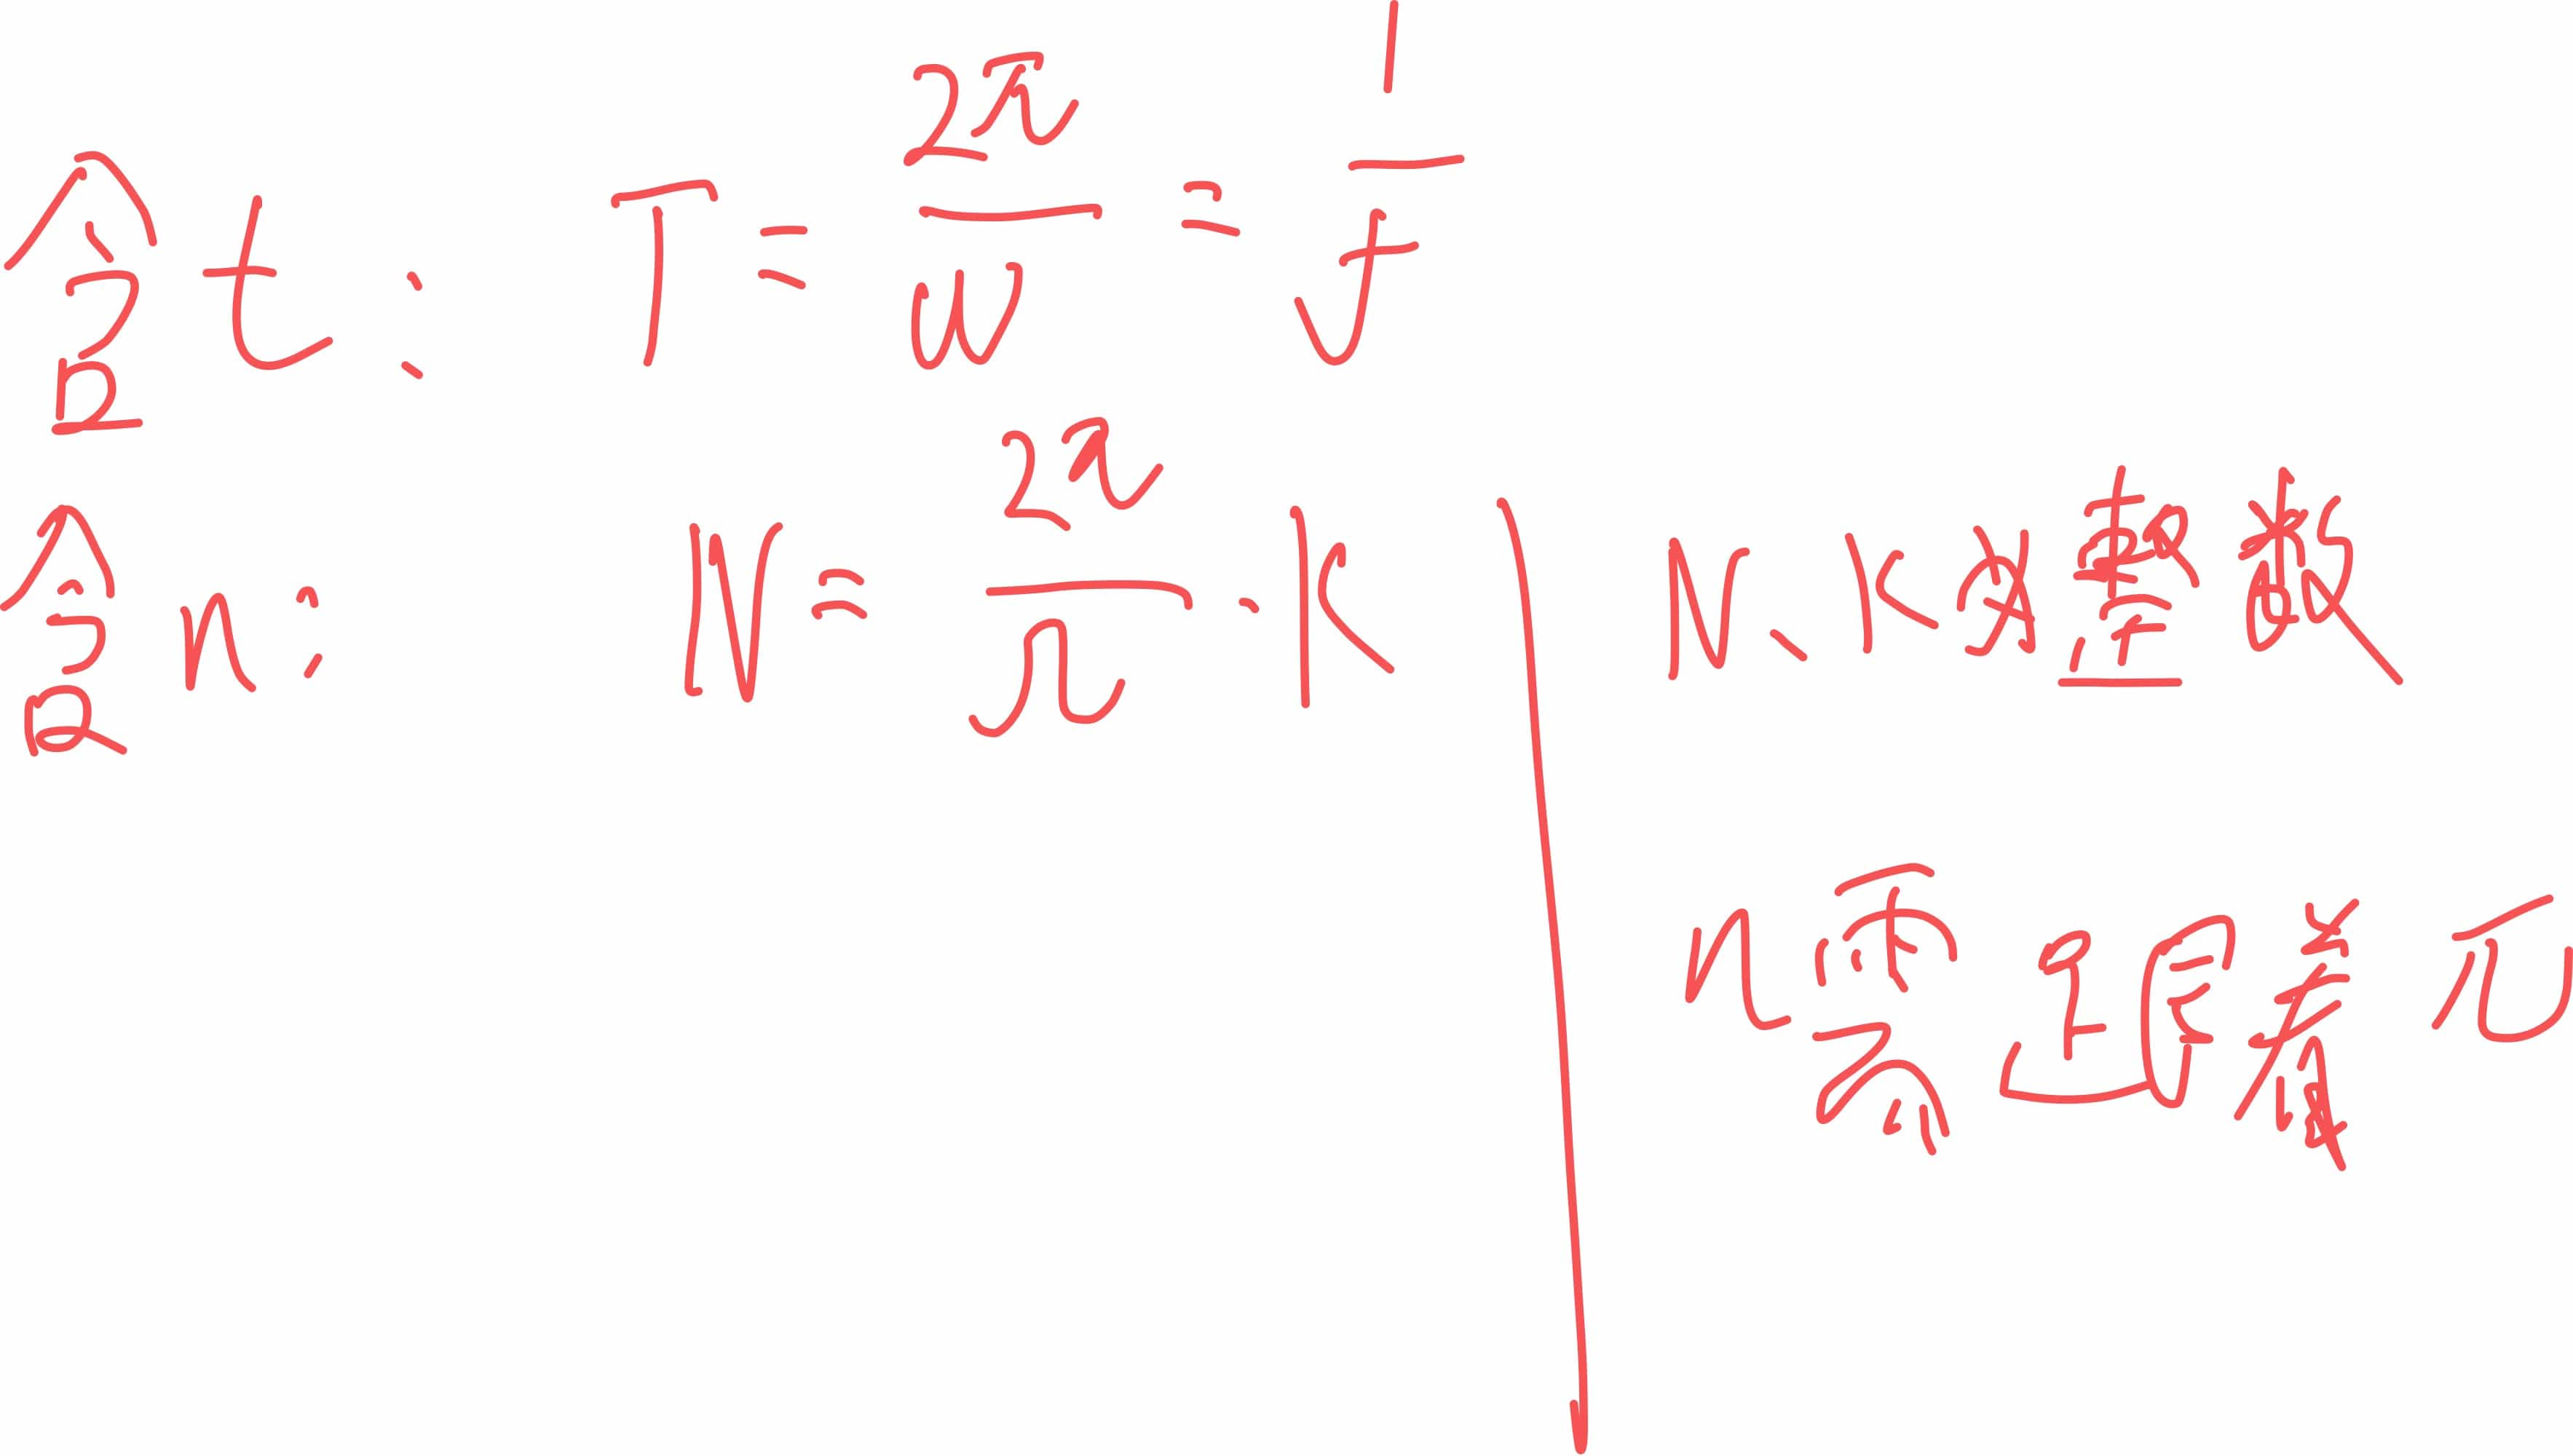 含t: T = 2π/ω = 1/f
含n: N = 2π/Ω · K
N、K为整数
n需跟着π